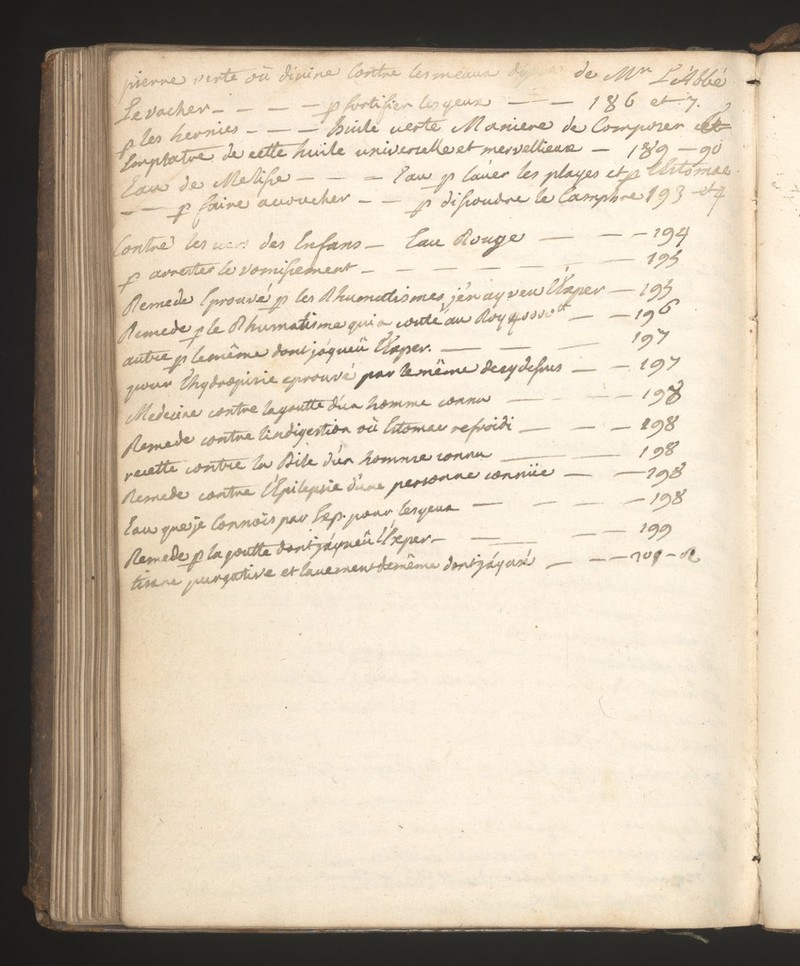 pierre verte où divine Contre les meaux de Mr L'Abbé
Levacher — — — — p fortifier les yeux — — 186 et 7.
p les hernies — — — huile verte Maniere de Composer et
Emplatre de cette huile universelle et mervellieuse — 189 — 90
Eau de Melise — — — Eau p laver les playes et p L'estomac
— — p faire acoucher — — p disoudre le Camphre 193 et 4
Contre les vers des Enfans — Eau Rouge — — — 194
p arrester le vomisement — — — — — — 195
Remede Eprouvé p les Rhumatismes j'en ay veu l'Exper — 195
Remede p le Rhumatisme qui a couté au Roy — — 196
autre p le même dont j'ay veü l'Exper. — — — 197
pour l'hydropisie eprouvé par le même decy desus — — 197
Medecine contre la goutte d'un homme connu — — — 198
Remede contre l'indigestion où Estomac refroidi — — — 198
recette contre la Bile d'un homme connu — — 198
Remede contre l'Epilepsie d'une personne connüe — — 198
Eau que je Connois par Exp. pour les yeux — — — — 198
Remede p la goutte dont j'ay veü l'Exper — — — 199
tisane purgative et lavement de même dont j'ay usé — — — 201 - 2